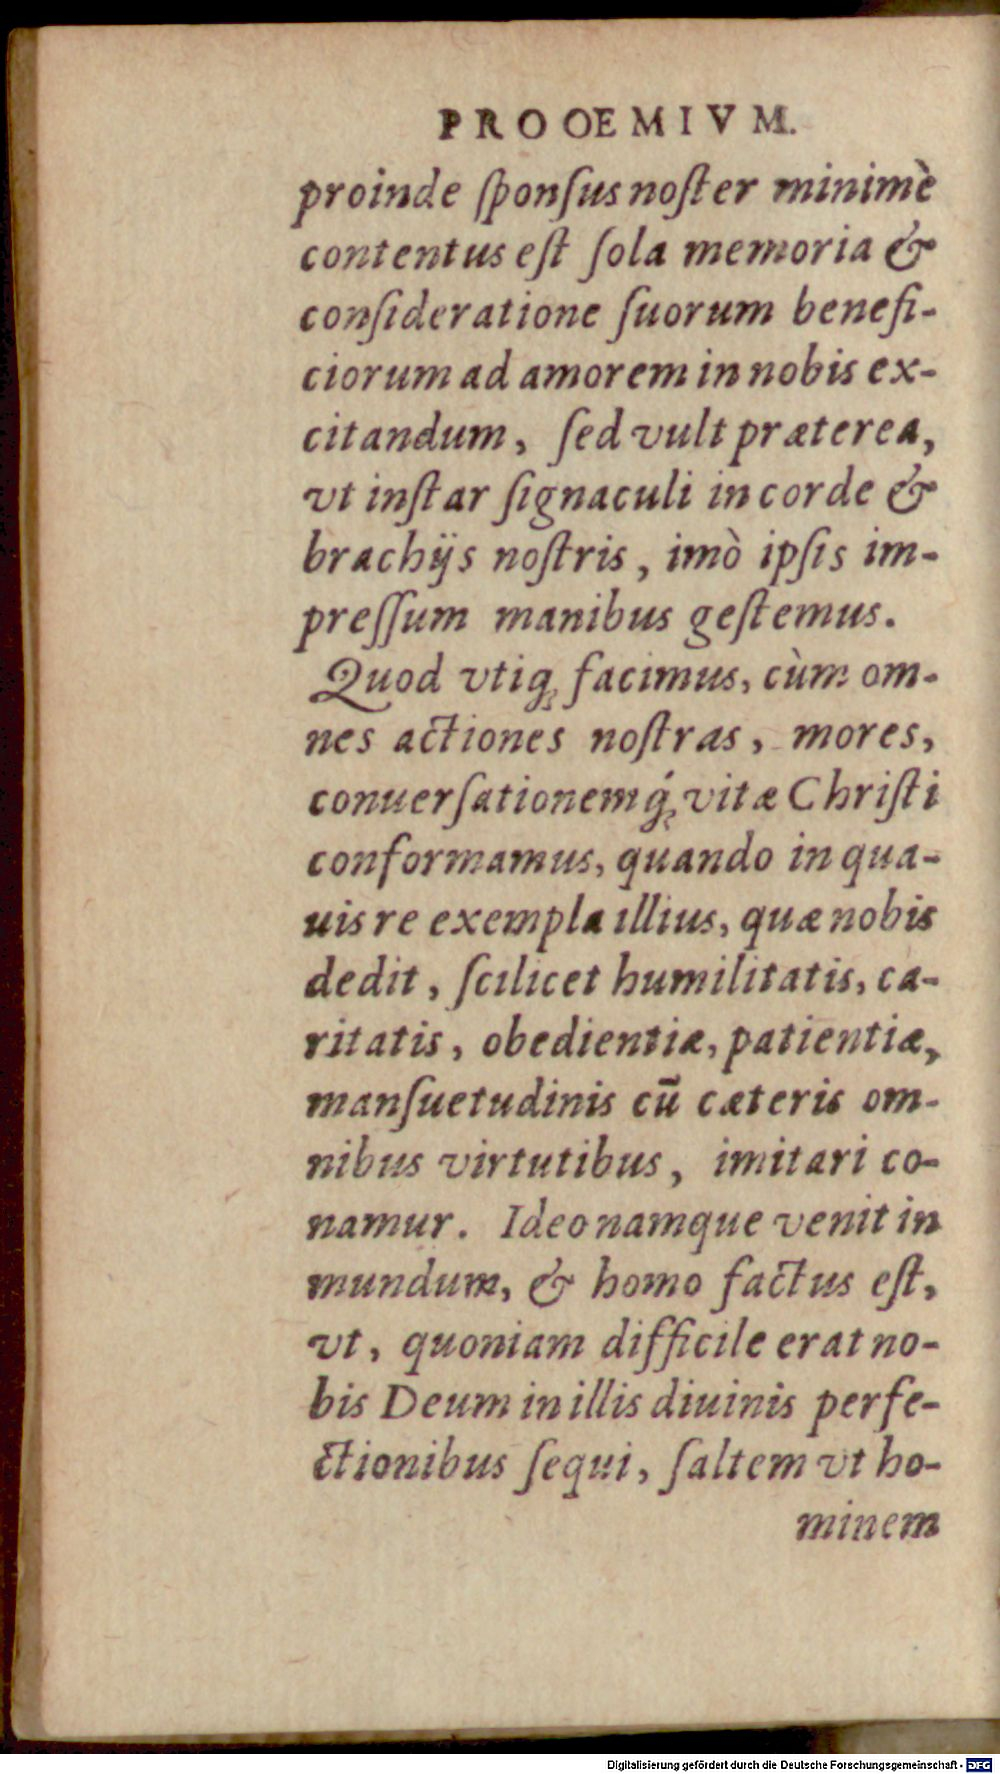 PROOEMIVM.
proinde ſponſus noſter minimè
contentus eſt ſola memoria &
conſideratione ſuorum benefi-
ciorum ad amorem in nobis ex-
citandum, ſed vult præterea,
vt inſtar ſignaculi in corde &
brachijs noſtris, imò ipſis im-
preſſum manibus geſtemus.
Quod vtiq; facimus, cùm om-
nes actiones noſtras, mores,
conuerſationemq́; vitæ Chriſti
conformamus, quando in qua-
uis re exempla illius, quæ nobis
dedit, ſcilicet humilitatis, ca-
ritatis, obedientiæ, patientiæ,
manſuetudinis cū cæteris om-
nibus virtutibus, imitari co-
namur. Ideo namque venit in
mundum, & homo factus eſt,
vt, quoniam difficile erat no-
bis Deum in illis diuinis perfe-
ctionibus ſequi, ſaltem vt ho-
minem
Digitalisierung gefördert durch die Deutsche Forschungsgemeinschaft - DFG